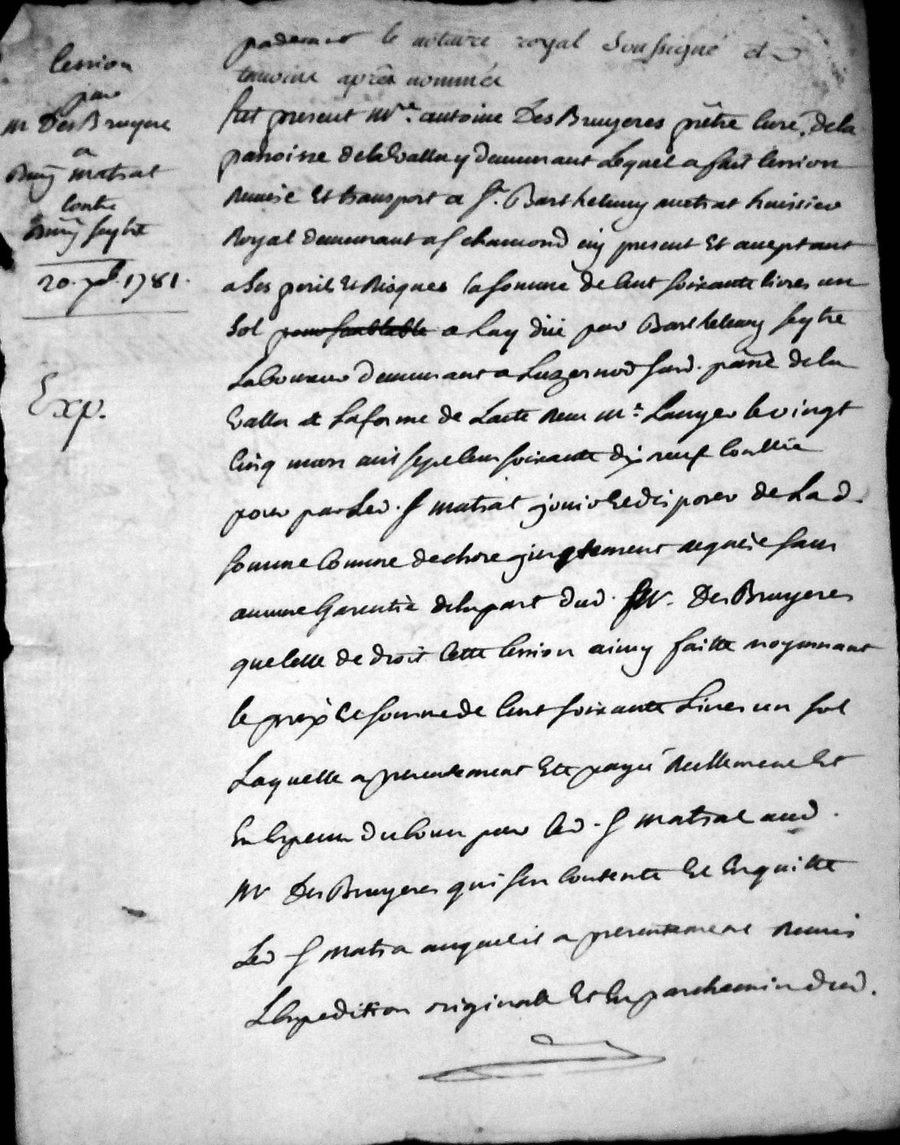 Cession
pour
M DesBruyere
a
Bmy matrat
contre
Bmy seytre
20. xbre 1781.
Exp.
pardevant le notaire royal soussigné et
temoins après nommés
fut present Mre. antoine DesBruyeres prêtre curé, de la
paroisse de la Valla y demeurant Lequel a fait cession
remise Et transport a sr. Barthelemy matrat huissier
Royal demeurant a st chamond icy present Et aceptant
a ses perils Et Risques la somme de cent soixante livres un
sol pour semblable a luy düe par Barthelemy seytre
Laboureur demeurant a Luzernod susd. parroisse de la
Valla et la forme de Lacte reçu Me. Lanyer le vingt
cinq mars mil sept cent soixante dix neuf
pour par Led. sr matrat jouir et disposer de La d.
somme comme de chose justement aquise sans
aucune Garentie de la part dud. sr DesBruyeres
que celle de droit cette cession ainsy faitte moyennant
le prix et somme de cent soixante Livres un sol
Laquelle a presentement Eté payé reellement Et
En Especes du cours par led. sr matrat aud.
Mr DesBruyeres qui sen contente Et En quitte
Led sr matra auquel il a presentement remis
LExpedition originale Et En parchemin dud.